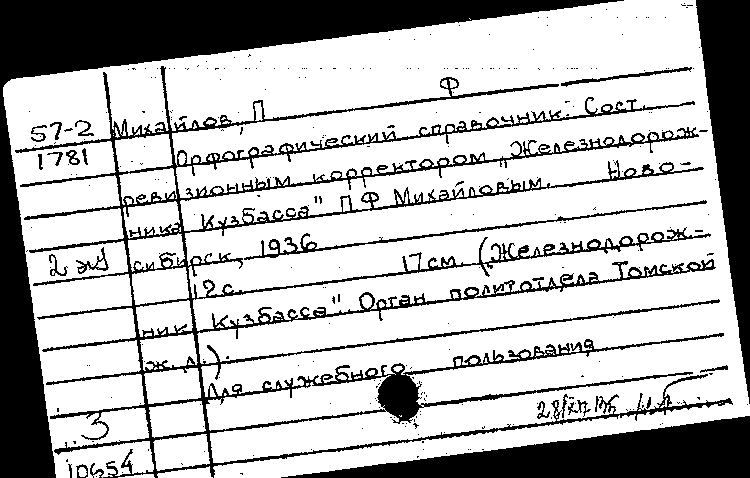 57-2 Михайлов, П Ф
1781 Орфографический справочник. Сост.
ревизионным корректором "Железнодорож-
ника Кузбасса" П.Ф Михайловым. Ново-
2 эк сибирск, 1936
12 с. 17 см. (Железнодорож-
ник Кузбасса". Орган политотдела Томской
ж.д.).
Для служебного пользования
3
10654